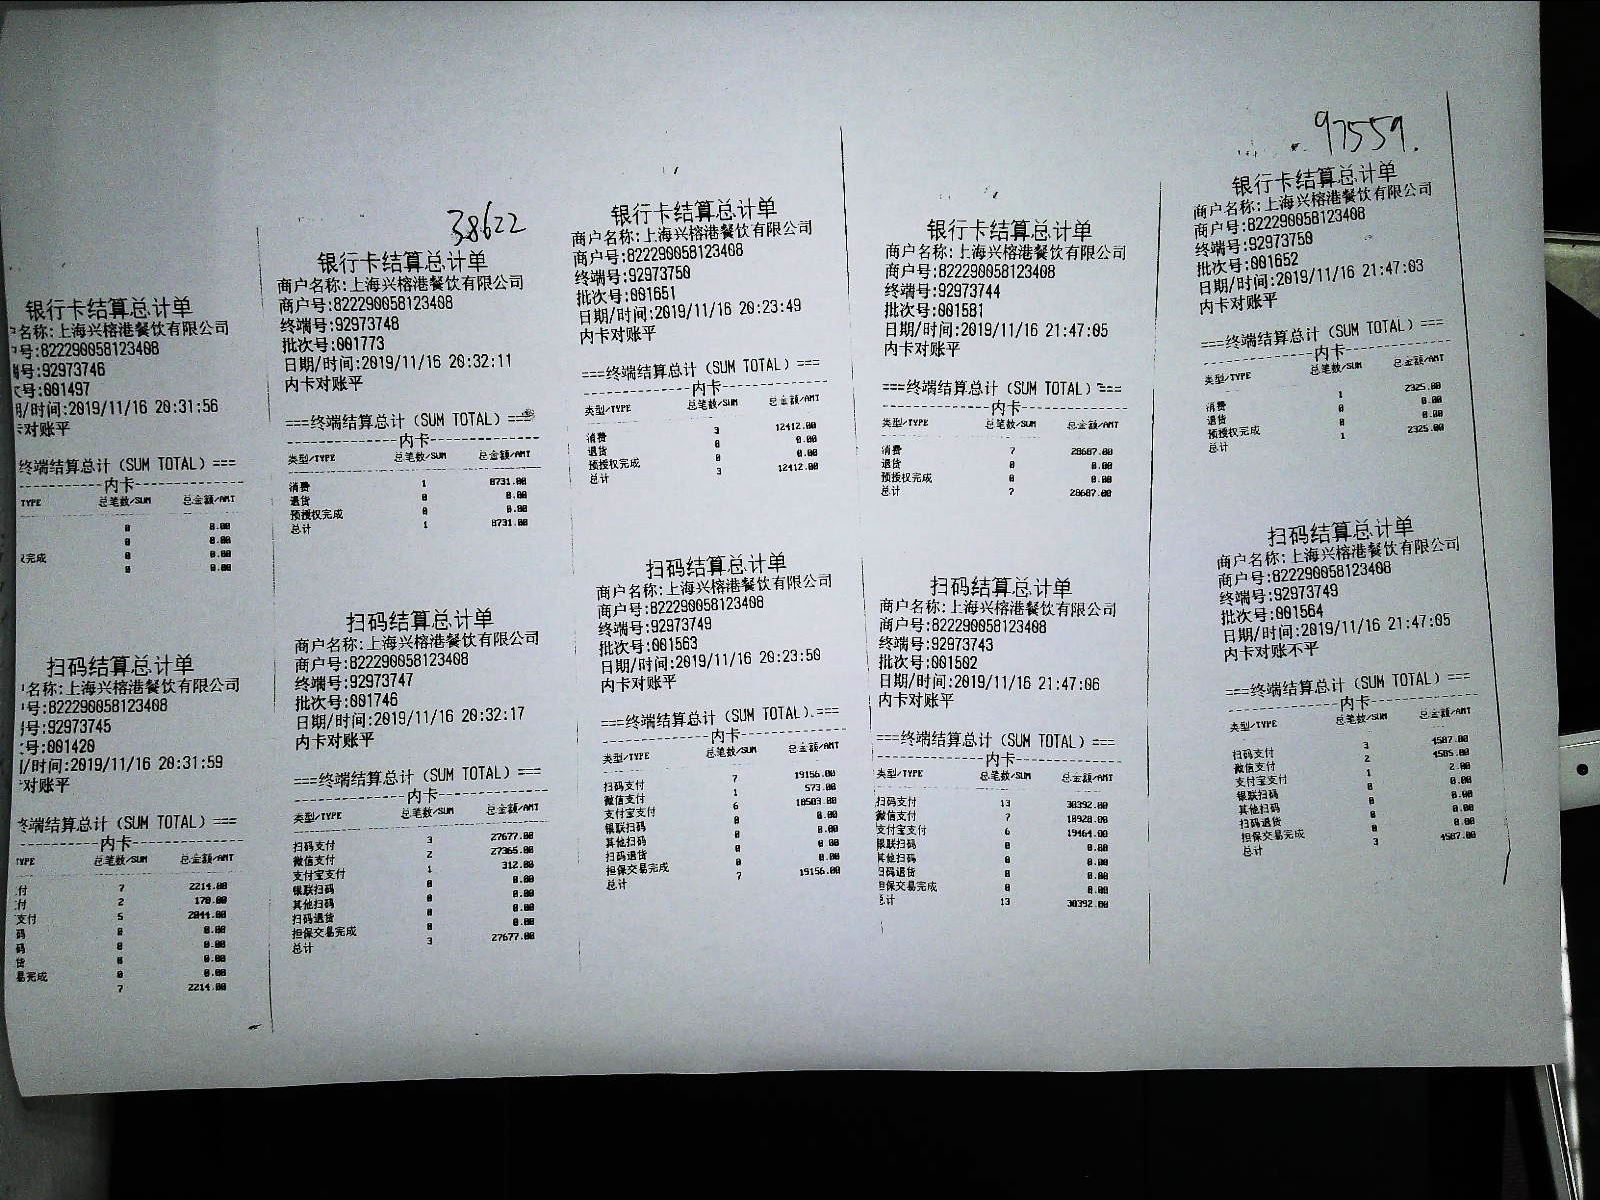 银行卡结算总计单
名称:上海兴榕港餐饮有限公司
号:822290058123408
号:92973746
号:001497
/时间:2019/11/16 20:31:56
对账平
终端结算总计(SUM TOTAL)===
内卡
TYPE 总笔数/SUM 总金额/AMT
0 0.00
0 0.00
完成 0 0.00
0 0.00
扫码结算总计单
名称:上海兴榕港餐饮有限公司
号:822290058123408
号:92973745
号:001420
/时间:2019/11/16 20:31:59
对账平
终端结算总计(SUM TOTAL)===
内卡
TYPE 总笔数/SUM 总金额/AMT
付 7 2214.00
付 2 170.00
支付 5 2044.00
码 0 0.00
码 0 0.00
货 0 0.00
易完成 0 0.00
7 2214.00
38622
银行卡结算总计单
商户名称:上海兴榕港餐饮有限公司
商户号:822290058123408
终端号:92973748
批次号:001773
日期/时间:2019/11/16 20:32:11
内卡对账平
===终端结算总计(SUM TOTAL)===
内卡
类型/TYPE 总笔数/SUM 总金额/AMT
消费 1 8731.00
退货 0 0.00
预授权完成 0 0.00
总计 1 8731.00
扫码结算总计单
商户名称:上海兴榕港餐饮有限公司
商户号:822290058123408
终端号:92973747
批次号:001746
日期/时间:2019/11/16 20:32:17
内卡对账平
===终端结算总计(SUM TOTAL)===
内卡
类型/TYPE 总笔数/SUM 总金额/AMT
扫码支付 3 27677.00
微信支付 2 27365.00
支付宝支付 1 312.00
银联扫码 0 0.00
其他扫码 0 0.00
扫码退货 0 0.00
担保交易完成 0 0.00
总计 3 27677.00
银行卡结算总计单
商户名称:上海兴榕港餐饮有限公司
商户号:822290058123408
终端号:92973750
批次号:001651
日期/时间:2019/11/16 20:23:49
内卡对账平
===终端结算总计(SUM TOTAL)===
内卡
类型/TYPE 总笔数/SUM 总金额/AMT
消费 3 12412.00
退货 0 0.00
预授权完成 0 0.00
总计 3 12412.00
扫码结算总计单
商户名称:上海兴榕港餐饮有限公司
商户号:822290058123408
终端号:92973749
批次号:001563
日期/时间:2019/11/16 20:23:50
内卡对账平
===终端结算总计(SUM TOTAL)===
内卡
类型/TYPE 总笔数/SUM 总金额/AMT
扫码支付 7 19156.00
微信支付 1 573.00
支付宝支付 6 18583.00
银联扫码 0 0.00
其他扫码 0 0.00
扫码退货 0 0.00
担保交易完成 0 0.00
总计 7 19156.00
银行卡结算总计单
商户名称:上海兴榕港餐饮有限公司
商户号:822290058123408
终端号:92973744
批次号:001581
日期/时间:2019/11/16 21:47:05
内卡对账平
===终端结算总计(SUM TOTAL)===
内卡
类型/TYPE 总笔数/SUM 总金额/AMT
消费 7 28687.00
退货 0 0.00
预授权完成 0 0.00
总计 7 28687.00
扫码结算总计单
商户名称:上海兴榕港餐饮有限公司
商户号:822290058123408
终端号:92973743
批次号:001502
日期/时间:2019/11/16 21:47:06
内卡对账平
===终端结算总计(SUM TOTAL)===
内卡
类型/TYPE 总笔数/SUM 总金额/AMT
扫码支付 13 30392.00
微信支付 7 10928.00
支付宝支付 6 19464.00
银联扫码 0 0.00
其他扫码 0 0.00
扫码退货 0 0.00
担保交易完成 0 0.00
总计 13 30392.00
97559.
银行卡结算总计单
商户名称:上海兴榕港餐饮有限公司
商户号:822290058123408
终端号:92973750
批次号:001652
日期/时间:2019/11/16 21:47:03
内卡对账平
===终端结算总计(SUM TOTAL)===
内卡
类型/TYPE 总笔数/SUM 总金额/AMT
消费 1 2325.00
退货 0 0.00
预授权完成 0 0.00
总计 1 2325.00
扫码结算总计单
商户名称:上海兴榕港餐饮有限公司
商户号:822290058123408
终端号:92973749
批次号:001564
日期/时间:2019/11/16 21:47:05
内卡对账不平
===终端结算总计(SUM TOTAL)===
内卡
类型/TYPE 总笔数/SUM 总金额/AMT
扫码支付 3 4587.00
微信支付 2 4585.00
支付宝支付 1 2.00
银联扫码 0 0.00
其他扫码 0 0.00
扫码退货 0 0.00
担保交易完成 0 0.00
总计 3 4587.00